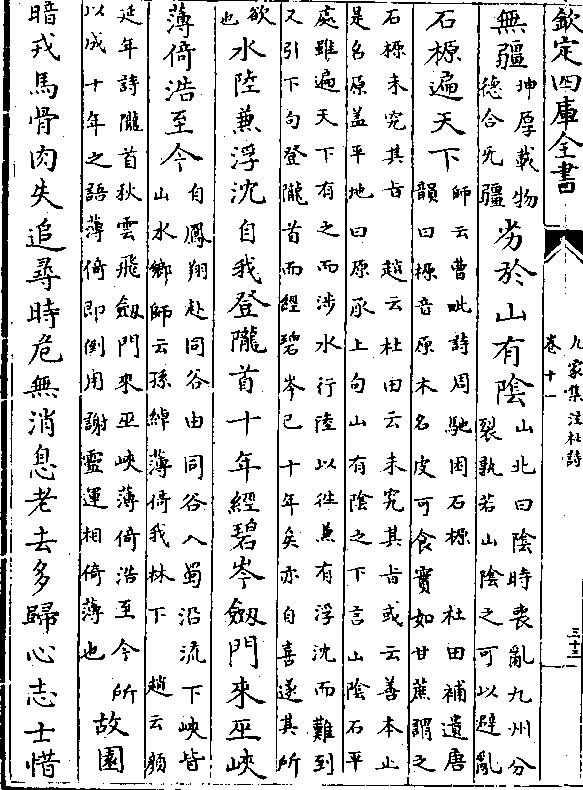 欽定四庫全書
九家集注杜詩
卷十一
三十三
無疆
坤厚載物
德合无疆
劣於山有陰
山北曰陰時喪亂九州分
裂孰若山陰之可以避亂
石㮳遍天下
師云曹毗詩周馳困石㮳 杜田補遺唐
韻曰㮳音原木名皮可食實如甘蕉謂之
石㮳未究其旨 趙云杜田云未究其旨或云善本止
是名原蓋平地曰原承上句山有陰之下言山陰石平
處雖遍天下有之而涉水行陸以徃兼有浮沈而難到
又引下句登隴首而經碧岑已十年矣亦自喜遂其所
欲
也
水陸兼浮沈自我登隴首十年經碧岑劔門來巫峽
薄倚浩至今
自鳳翔赴同谷由同谷入蜀沿流下峽皆
山水鄉師云孫綽薄倚我林下 趙云顔
延年詩隴首秋雲飛劔門來巫峽薄倚浩至今所
以成十年之語薄倚即倒用謝靈運相倚薄也
故園
暗戎馬骨肉失追尋時危無消息老去多歸心志士惜